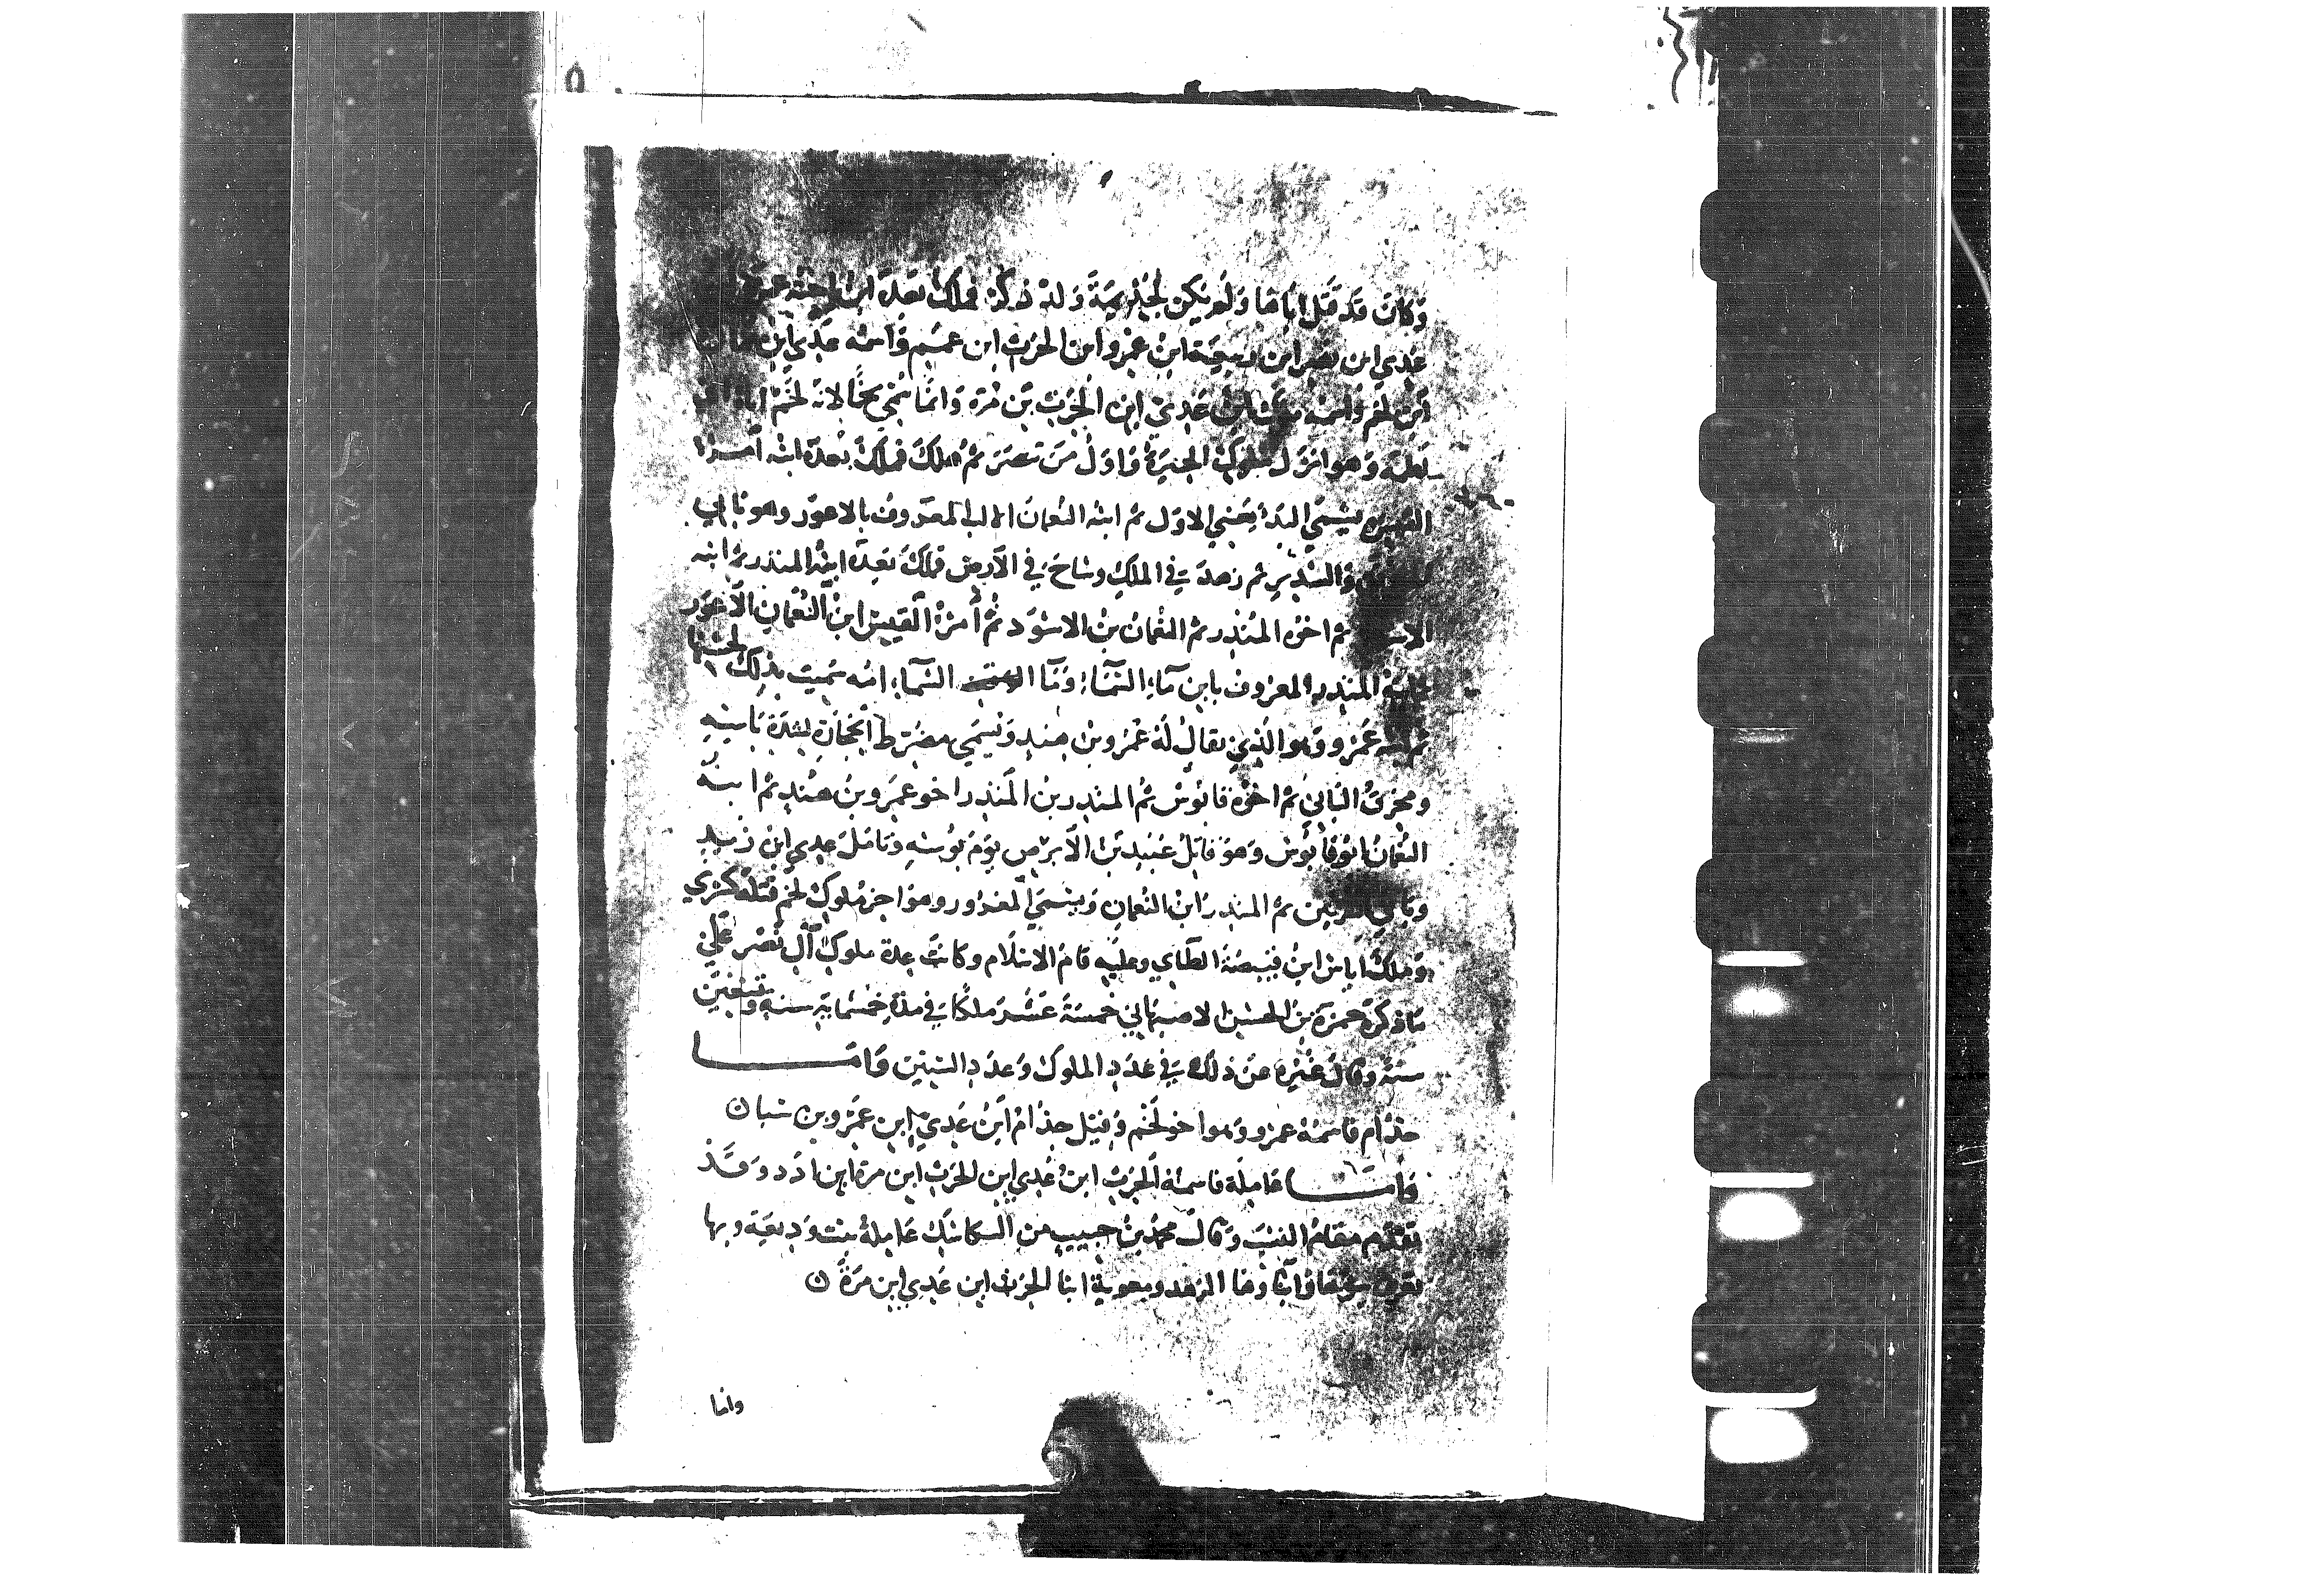 ٥
وكان قد قتل اباها ولم يكن لجذيمة ولد ذكر فملك بعده ابن اخته عمرو
عدي ابن نصر ابن ربيعة ابن عمرو ابن الحرث ابن عمم واسمه عدي ابن
ابن لخم واسمه مالك ابن عدي ابن الحرث بن مرة وانما سمي لخما لانه لخم اباه اي
لطمه وهو اول ملوك الحيرة واول من تنصر ثم هلك فملك بعده ابنه امرؤ
القيس يسمي البدء يعني الاول ثم ابنه النعمان المعروف بالاعور وهو باني
والسدير ثم زهد في الملك وساح في الارض فملك بعده ابنه المنذر ثم ابنه
الاسود ثم اخوه المنذر ثم النعمان بن الاسود ثم امرؤ القيس ابن النعمان الاعور
ثم ابنه المنذر المعروف بابن ماء السماء وما السماء امه سميت بذلك لحسنها
ثم ابنه عمرو وهو الذي يقال له عمرو بن هند ويسمي مضرط الحجارة لشدة باسه
ومحرق الثاني ثم اخوه قابوس ثم المنذر بن المنذر اخو عمرو بن هند ثم ابنه
النعمان ابو قابوس وهو قاتل عبيد بن الابرص يوم بوسه وقاتل عدي ابن زيد
وباني الغريين ثم المنذر ابن النعمان ويسمي المغرور وهو اخر ملوك لخم قتله كسري
وملك اياس ابن قبيصة الطاي وعليه قام الاسلام وكانت عدة ملوك آل نصر علي
ما ذكره حمزة بن الحسن الاصبهاني خمسة عشر ملكا في مدة خمسماية سنه وتسعين
سنة وقال غيره عن ذلك في عدد الملوك وعدد السنين واما
جذام فاسمه عمرو وهو اخو لخم وقيل جذام ابن عدي ابن عمرو بن سبا ن
واما عاملة فاسمه الحرث ابن عدي ابن الحرث ابن مرة ابن ادد وقد
تقدم مقام النسب وقال محمد بن حبيب من السكاسك عاملة بنت وديعة وبها
يعرف بنوها وابنا وهما الزهد ومعوية ابنا الحرث ابن عدي ابن مرة ن
واما